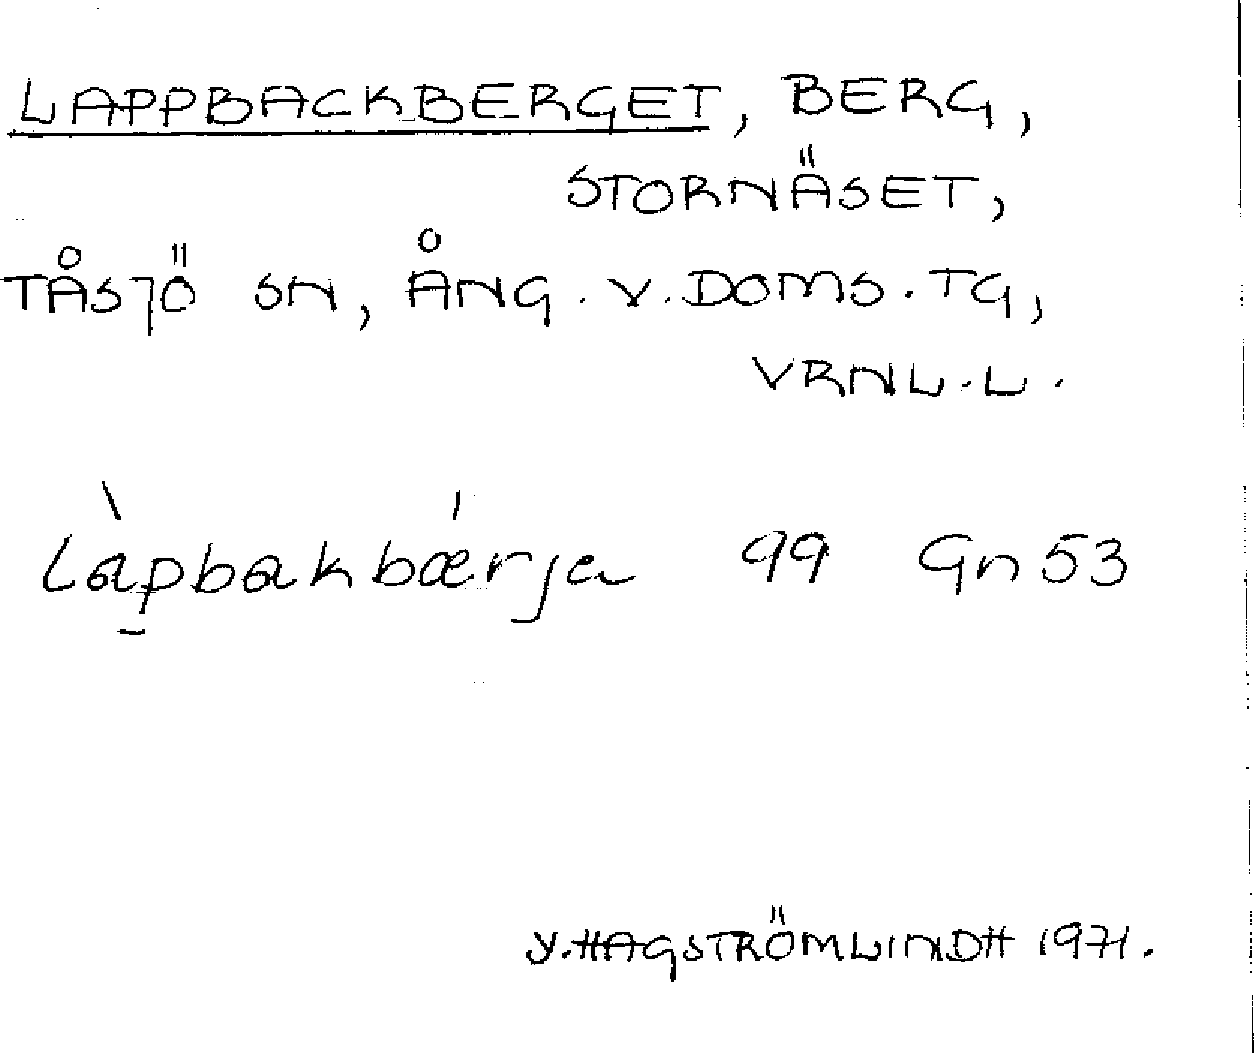 LAPPBACKBERGET, BERG,
STORNÄSET,
TÅSJÖ SN, ÅNG. V. DOMS. TG,
VRNL. L.
Làp̱bakbǽrja 99 Gn 53
Y. HAGSTRÖMLINDH 1971.